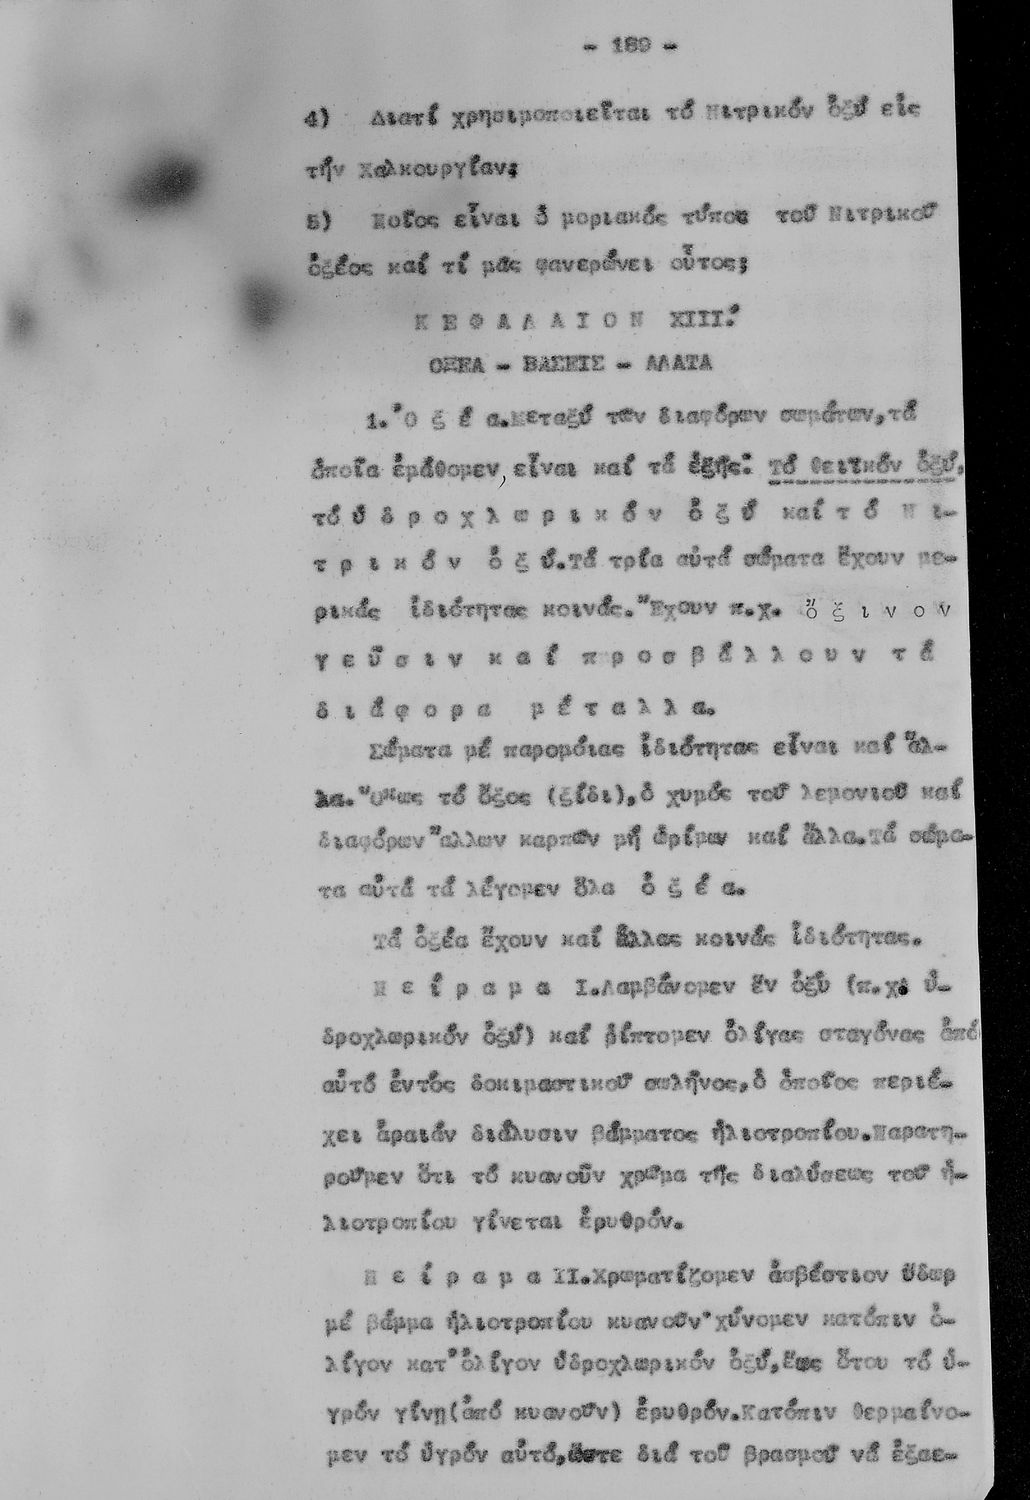 - 189 -
4) Διατί χρησιμοποιεῖται τό Νιτρικόν ὀξύ εἰς
τήν Χαλκουργίαν;
5) Ποῖος εἶναι ὁ μοριακός τύπος τοῦ Νιτρικοῦ
ὀξέος καί τί μᾶς φανερώνει οὗτος;
Κ Ε Φ Α Λ Α Ι Ο Ν XIII.
ΟΞΕΑ - ΒΑΣΕΙΣ - ΑΛΑΤΑ
1. Ὀ ξ έ α. Μεταξύ τῶν διαφόρων σωμάτων, τά
ὁποῖα ἐμάθομεν, εἶναι καί τά ἑξῆς: Τό θειϊκόν ὀξύ,
τό ὑ δ ρ ο χ λ ω ρ ι κ ό ν ὀ ξ ύ καί τ ό Ν ι-
τ ρ ι κ ό ν ὀ ξ ύ. Τά τρία αὐτά σώματα ἔχουν με-
ρικάς ἰδιότητας κοινάς. Ἔχουν π.χ. ὄ ξ ι ν ο ν
γ ε ῦ σ ι ν κ α ί π ρ ο σ β ά λ λ ο υ ν τ ά
δ ι ά φ ο ρ α μ έ τ α λ λ α.
Σώματα μέ παρομοίας ἰδιότητας εἶναι καί ἄλ-
λα. Ὅπως τό ὄξος (ξίδι), ὁ χυμός τοῦ λεμονιοῦ καί
διαφόρων ἄλλων καρπῶν μή ὡρίμων καί ἄλλα. Τά σώμα-
τα αὐτά τά λέγομεν ὅλα ὀ ξ έ α.
Τά ὀξέα ἔχουν καί ἄλλας κοινάς ἰδιότητας.
Π ε ί ρ α μ α I. Λαμβάνομεν ἕν ὀξύ (π.χ. ὑ-
δροχλωρικόν ὀξύ) καί ῥίπτομεν ὀλίγας σταγόνας ἀπό
αὐτό ἐντός δοκιμαστικοῦ σωλῆνος, ὁ ὁποῖος περιέ-
χει ἀραιάν διάλυσιν βάμματος ἡλιοτροπίου. Παρατη-
ροῦμεν ὅτι τό κυανοῦν χρῶμα τῆς διαλύσεως τοῦ ἡ-
λιοτροπίου γίνεται ἐρυθρόν.
Π ε ί ρ α μ α II. Χρωματίζομεν ἀσβέστιον ὕδωρ
μέ βάμμα ἡλιοτροπίου κυανοῦν· χύνομεν κατόπιν ὀ-
λίγον κατ' ὀλίγον ὑδροχλωρικόν ὀξύ, ἕως ὅτου τό ὑ-
γρόν γίνῃ (ἀπό κυανοῦν) ἐρυθρόν. Κατόπιν θερμαίνο-
μεν τό ὑγρόν αὐτό, ὥστε διά τοῦ βρασμοῦ νά ἐξαε-